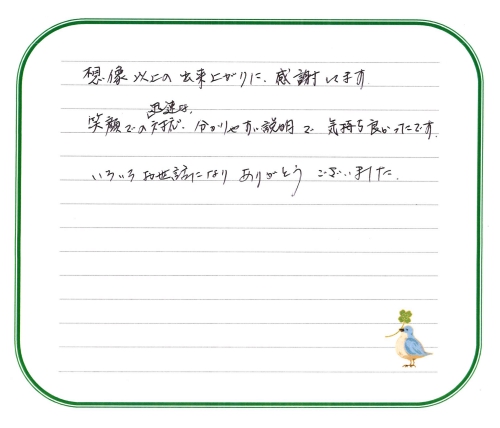 想像以上の出来上がりに、感謝してます
笑顔での迅速な、対応、分かりやすい説明で気持ち良かったです。
いろいろお世話になりありがとうございました。